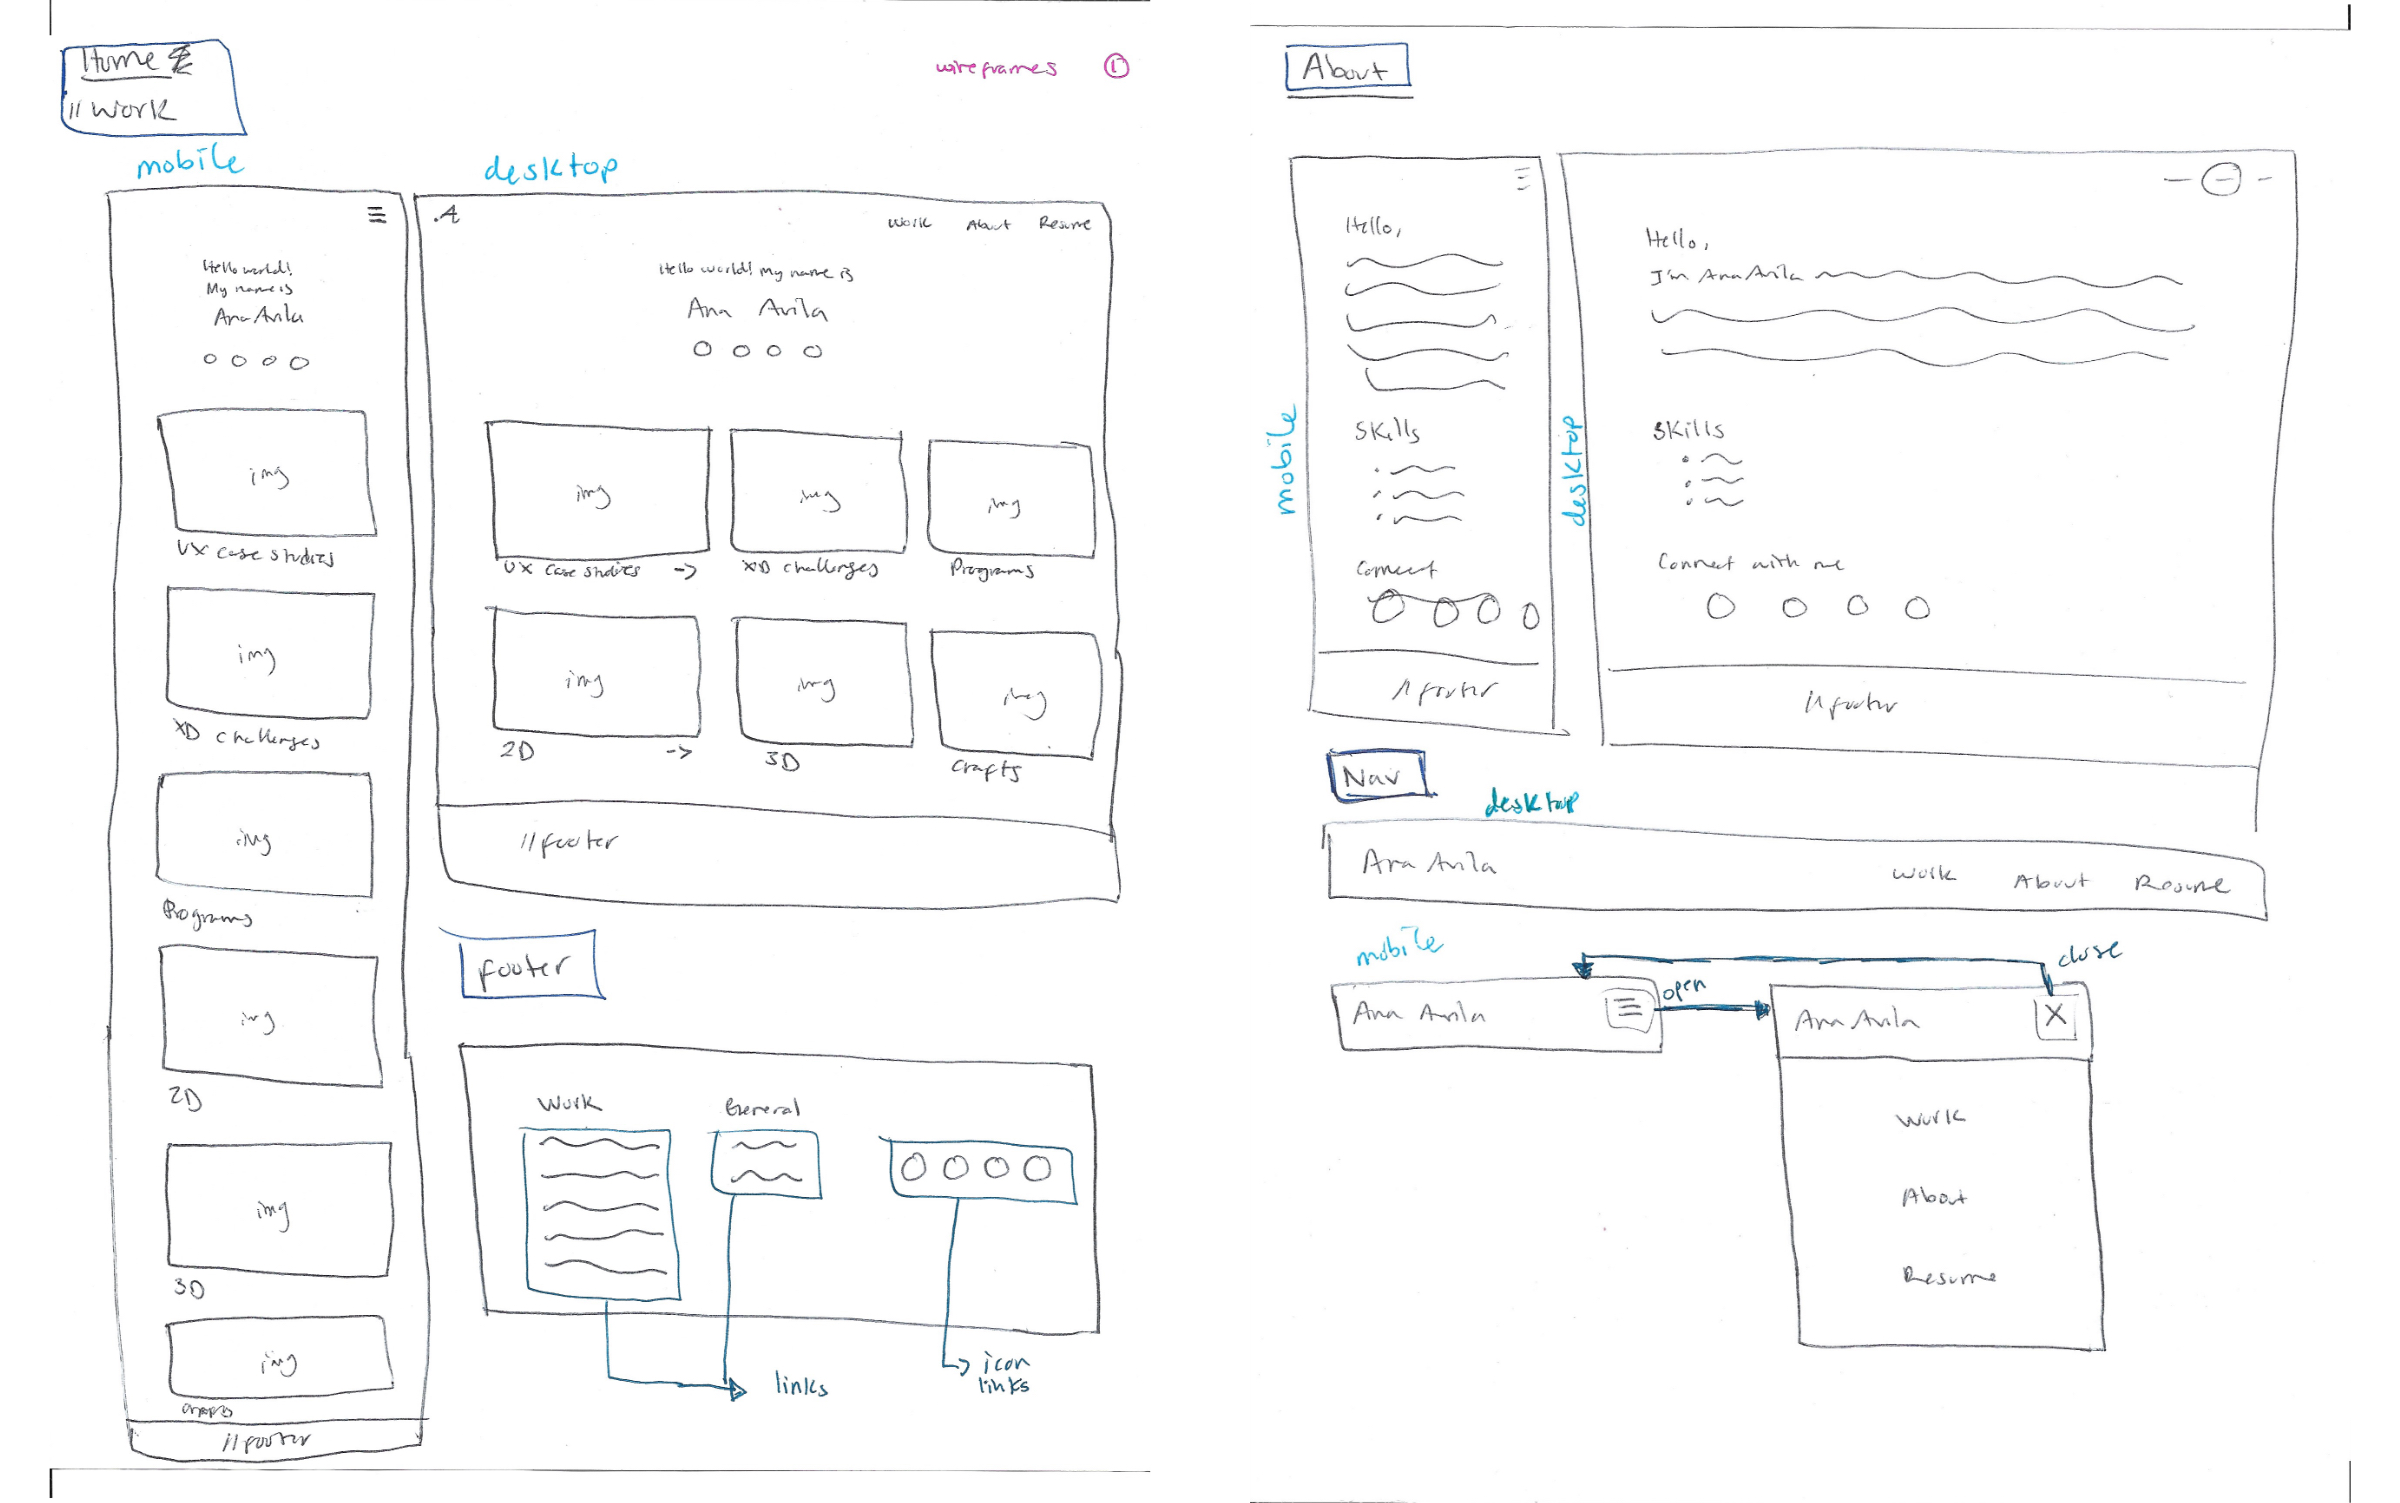 Home
// Work
wireframes ①
mobile
Hello world!
My name is
Ana Avila
img
UX case studies
img
XD challenges
img
Programs
img
2D
img
3D
img
crafts
// footer
desktop
.A
Work About Resume
Hello world! My name is
Ana Avila
img img img
UX case studies -> XD challenges Programs
img img img
2D -> 3D crafts
// footer
footer
Work General
links
icon
links
About
mobile
Hello,
Skills
Connect
// footer
desktop
Hello,
I'm Ana Avila
Skills
Connect with me
// footer
Nav
desktop
Ana Avila Work About Resume
mobile
Ana Avila
open
close
Ana Avila X
Work
About
Resume